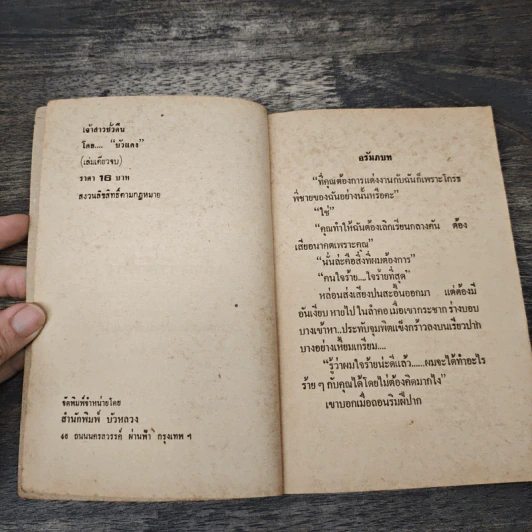 เจ้าสาวชั่วคืน
โดย.... "บัวแดง"
(เล่มเดียวจบ)
ราคา 16 บาท
สงวนลิขสิทธิ์ตามกฎหมาย
จัดพิมพ์จำหน่ายโดย
สำนักพิมพ์ บัวหลวง
๔๘ ถนนนครสวรรค์ ผ่านฟ้า กรุงเทพ ฯ
อรัมภบท
"ที่คุณต้องการแต่งงานกับฉันก็เพราะโกรธ
พี่ชายของฉันอย่างนั้นหรือคะ"
"ใช่"
"คุณทำให้ฉันต้องเลิกเรียนกลางคัน ต้อง
เสียอนาคตเพราะคุณ"
"นั่นล่ะคือสิ่งที่ผมต้องการ"
"คนใจร้าย....ใจร้ายที่สุด"
หล่อนส่งเสียงปนสะอื้นออกมา แต่ต้องมี
อันเงียบ หายไป ในลำคอ เมื่อเขากระชาก ร่างบอบ
บางเข้าหา..ประทับจุมพิตแข็งกร้าวลงบนเรียวปาก
บางอย่างเหี้ยมเกรียม....
"รู้ว่าผมใจร้ายน่ะดีแล้ว......ผมจะได้ทำอะไร
ร้าย ๆ กับคุณได้โดยไม่ต้องคิดมากไง"
เขาบอกเมื่อถอนริมฝีปาก